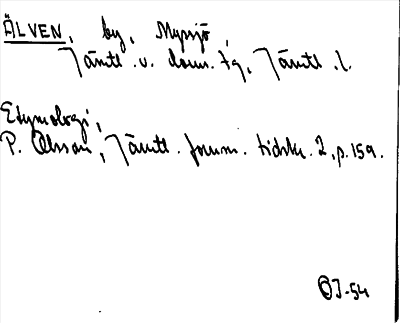 ÄLVEN, by, Myssjö,
Jämtl. v. doms. tg, Jämtl. l.
Etymologi,
P. Olsson, Jämtl. fornm. tidskr. 2, p. 159.
ÖJ-54